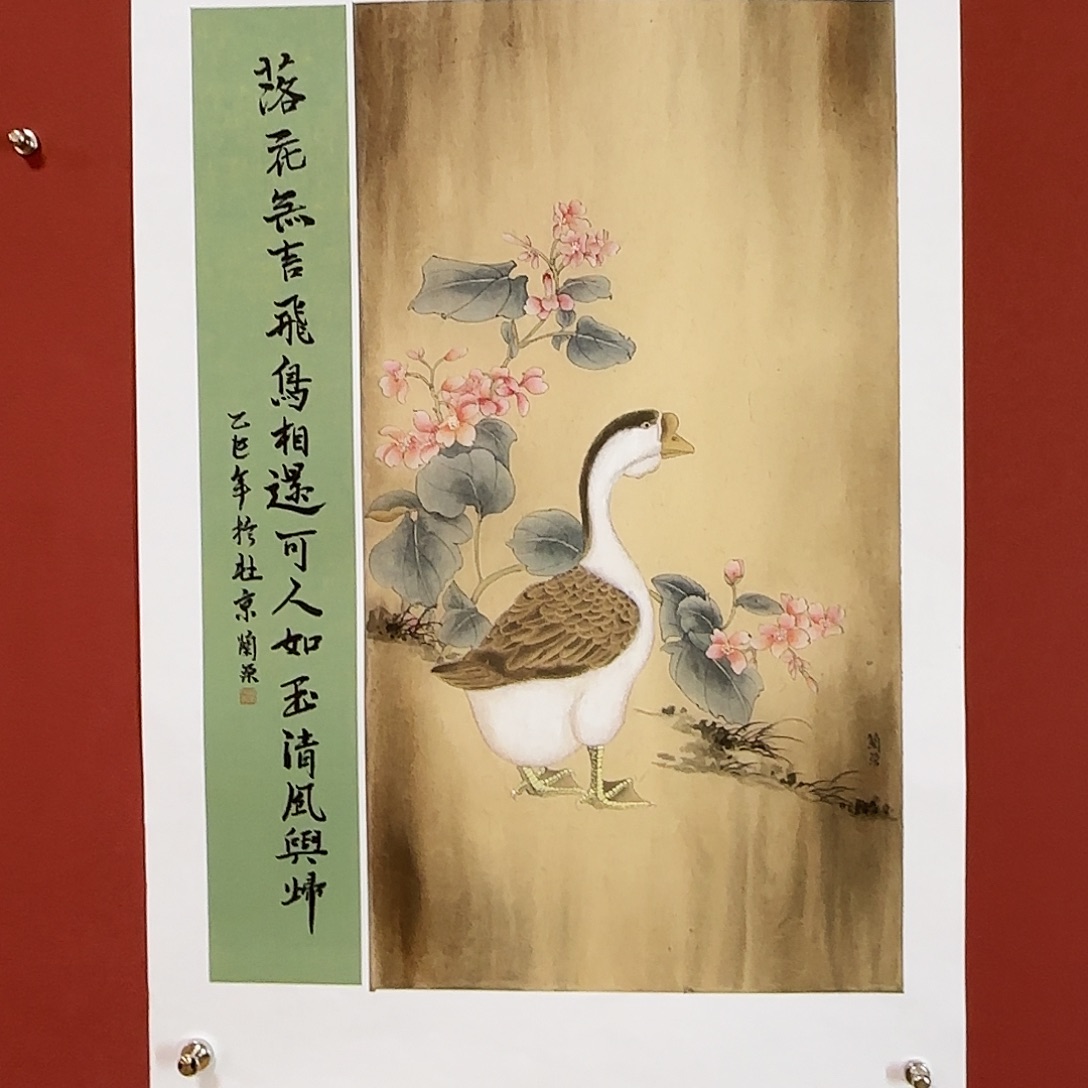 落花無言飛鳥相還可人如玉清風與歸
乙巳年於北京蘭榮
蘭榮